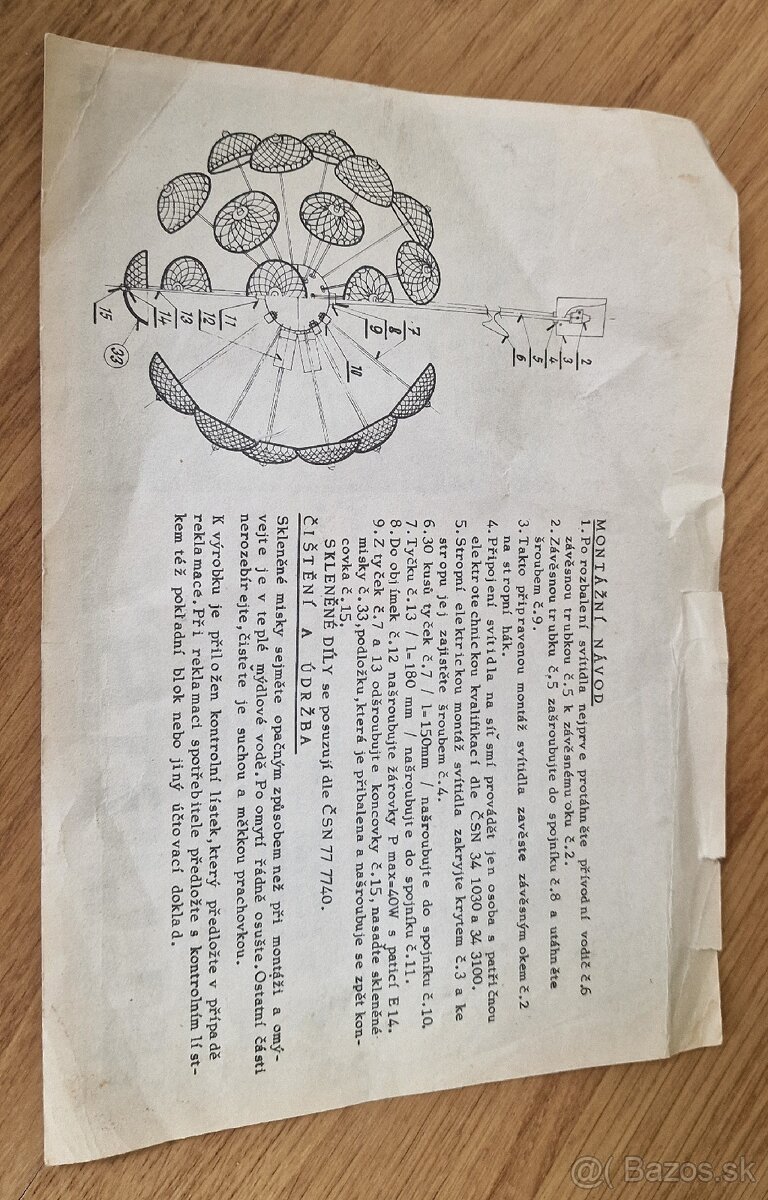 MONTÁŽNÍ NÁVOD
1. Po rozbalení svítidla nejprve protáhněte přívodní vodič č.6
závěsnou trubkou č.5 k závěsnému oku č.2.
2. Závěsnou trubku č.5 zašroubujte do spojníku č.8 a utáhněte
šroubem č.9.
3. Takto připravenou montáž svítidla zavěste závěsným okem č.2
na stropní hák.
4. Připojení svítidla na síť smí provádět jen osoba s patřičnou
elektrotechnickou kvalifikací dle ČSN 34 1030 a 34 3100.
5. Stropní elektrickou montáž svítidla zakryjte krytem č.3 a ke
stropu jej zajistěte šroubem č.4.
6. 30 kusů tyček č.7 / l=150mm / našroubujte do spojníku č.10.
7. Tyčku č.13 / l=180 mm / našroubujte do spojníku č.11.
8. Do objímek č.12 našroubujte žárovky P max=40W s paticí E14.
9. Z tyček č.7 a 13 odšroubujte koncovky č.15, nasaďte skleněné
misky č.33, podložku, která je přibalena a našroubuje se zpět kon-
covka č.15.
SKLENĚNÉ DÍLY se posuzují dle ČSN 77 7740.
ČIŠTĚNÍ A ÚDRŽBA
Skleněné misky sejměte opačným způsobem než při montáži a omý-
vejte je v teplé mýdlové vodě. Po omytí řádně osušte. Ostatní části
nerozebírejte, čistete je suchou a měkkou prachovkou.
K výrobku je přiložen kontrolní lístek, který předložte v případě
reklamace. Při reklamaci spotřebitele předložte s kontrolním líst-
kem též pokladní blok nebo jiný účtovací doklad.
2
3
4
5
6
7
8
9
10
11
12
13
14
15
33
Bazos.sk